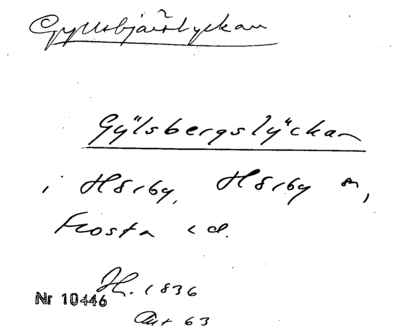 Gyllsbjärslyckan
Gyllsbergslyckan
i Hörby, Hörby sn,
Frosta hd.
H. 1836
Nr 10446
Akt 63